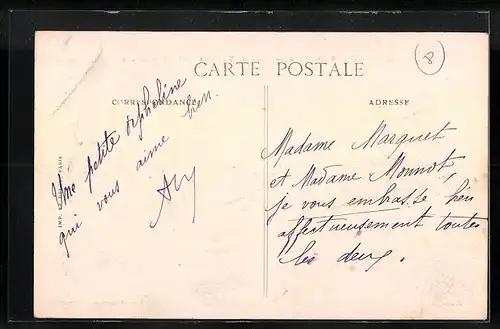 8
CARTE POSTALE
CORRESPONDANCE
ADRESSE
Une petite orpheline
qui vous aime bien.
Madame Marquet
et Madame Monnot,
je vous embrasse bien
affectueusement toutes
les deux.
IMP.
PARIS